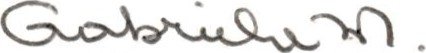 Gabriele M.